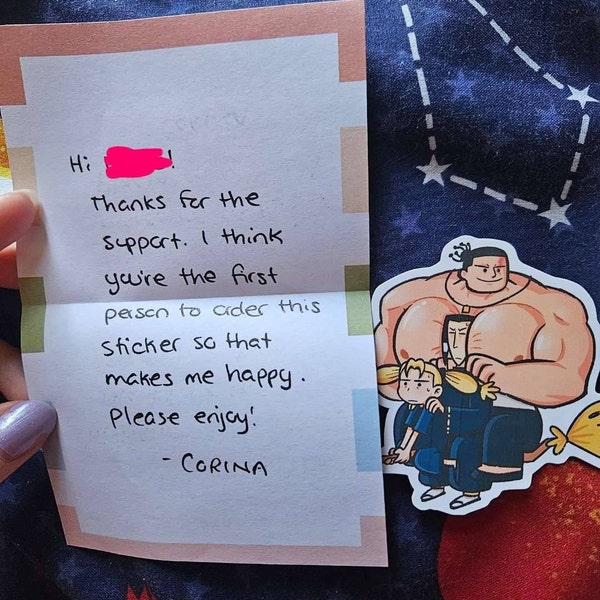 Hi !
Thanks for the
support. I think
you're the first
person to order this
sticker so that
makes me happy.
Please enjoy!
- CORINA